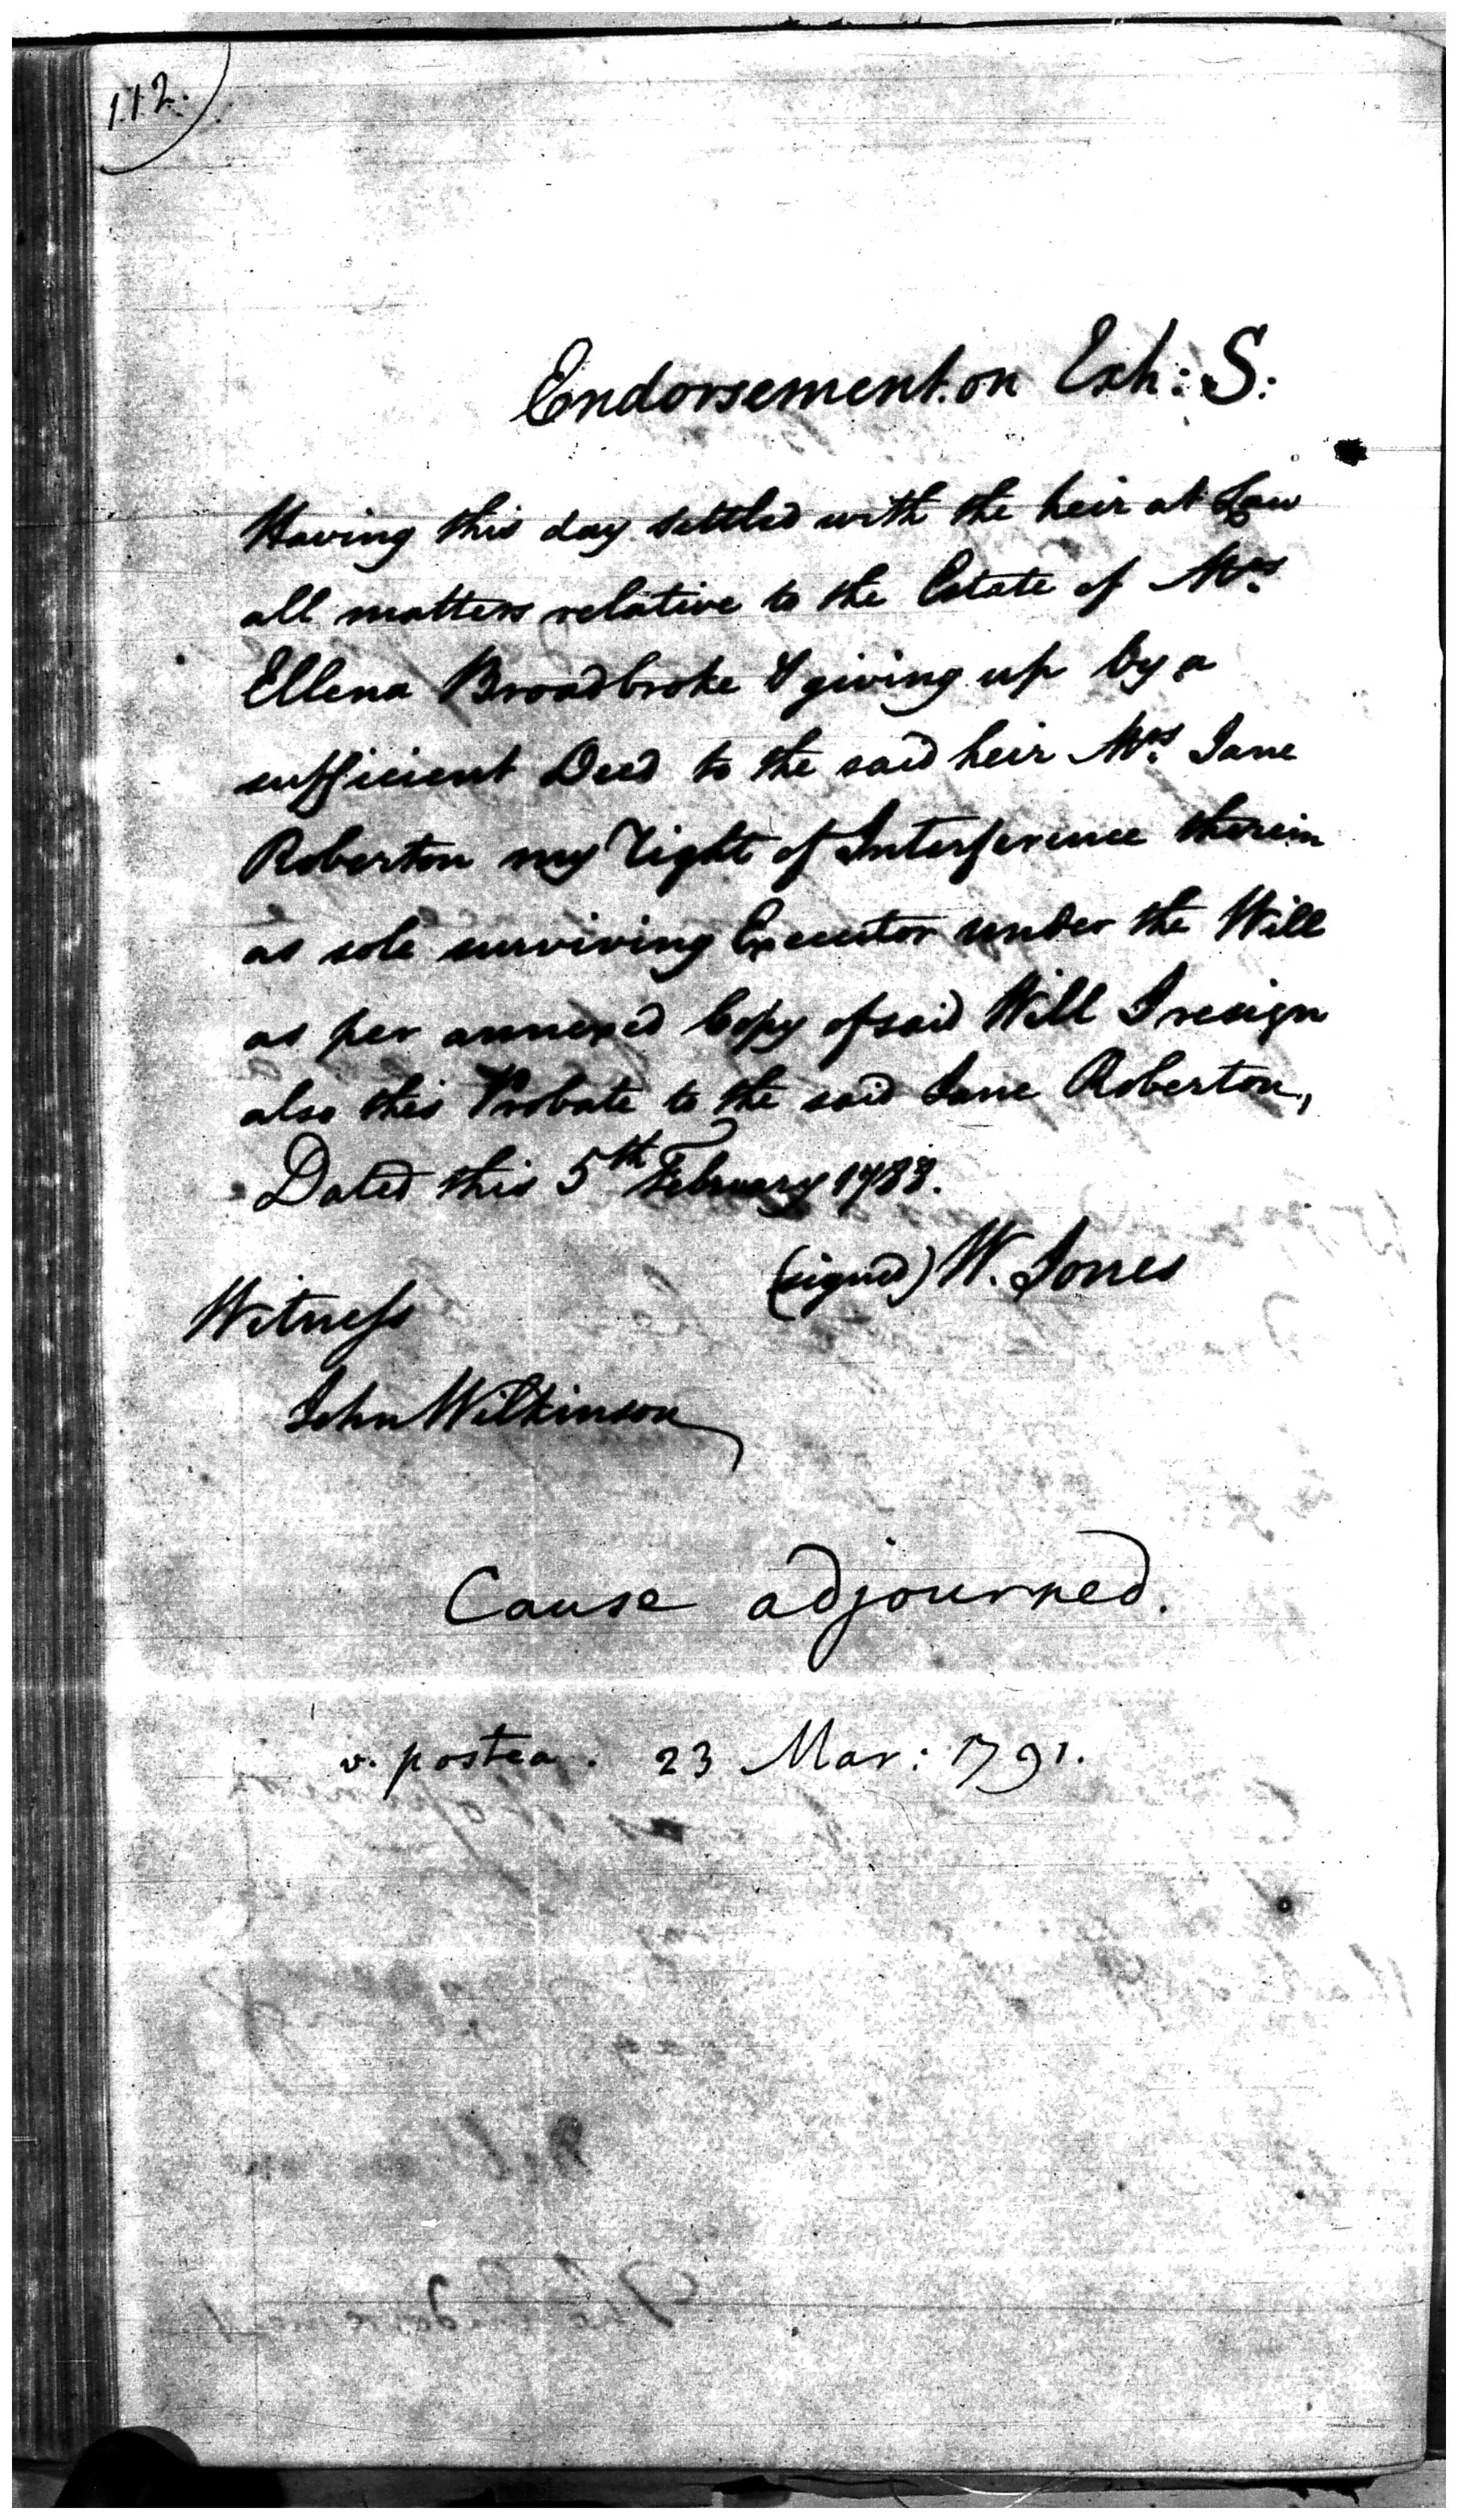 112.
Endorsement on Exh: S:
Having this day settled with the heir at Law
all matters relative to the Estate of Mrs.
Ellena Broadbroke & giving up by a
sufficient Deed to the said heir Mrs. Jane
Roberton my right of Interference therein
as sole surviving Executor under the Will
as per annexed Copy of said Will I resign
also this Probate to the said Jane Roberton,
Dated this 5th February 1788.
(signed) W. Jones
Witness
John Wilkinson
Cause adjourned.
v. postea. 23 Mar: 1791.